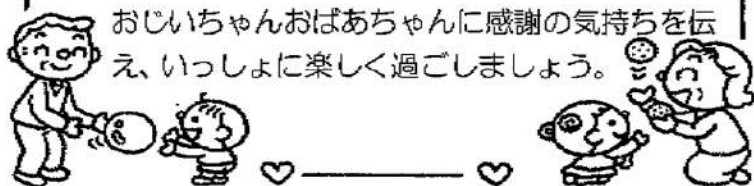 おじいちゃんおばあちゃんに感謝の気持ちを伝
え、いっしょに楽しく過ごしましょう。